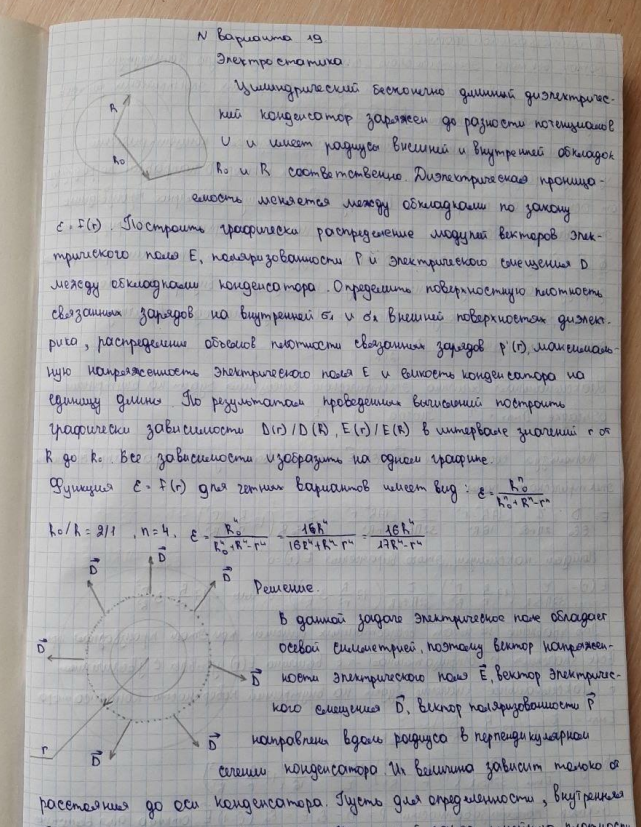 N варианта 19
Электростатика
Цилиндрический бесконечно длинный диэлектричес-
кий конденсатор заряжен до разности потенциалов
U и имеет радиусы внешней и внутренней обкладок
R₀ и R соответственно. Диэлектрическая проница-
емость меняется между обкладками по закону
ε = f(r). Построить графически распределение модулей векторов элек-
трического поля E, поляризованности P и электрического смещения D
между обкладками конденсатора. Определить поверхностную плотность
связанных зарядов на внутренней σ₁ и σ₂ внешней поверхностях диэлект-
рика, распределение объемов плотности связанных зарядов ρ'(r), максималь-
ную напряженность электрического поля E и емкость конденсатора на
единицу длины. По результатам проведенных вычислений построить
графически зависимости D(r)/D(R), E(r)/E(R) в интервале значений r от
R до R₀. Все зависимости изобразить на одном графике.
Функция ε = f(r) для четных вариантов имеет вид: ε = R₀ⁿ/(R₀ⁿ+Rⁿ-rⁿ)
R₀/R = 2/1, n=4. ε = R₀⁴/(R₀⁴+R⁴-r⁴) = 16R⁴/(16R⁴+R⁴-r⁴) = 16R⁴/(17R⁴-r⁴)
Решение.
В данной задаче электрическое поле обладает
осевой симметрией, поэтому вектор напряжен-
ности электрического поля E⃗, вектор электричес-
кого смещения D⃗, вектор поляризованности P⃗
направлена вдоль радиуса в перпендикулярном
сечении конденсатора. Их величина зависит только от
расстояния до оси конденсатора. Пусть для определенности, внутренняя
R
R₀
D⃗
D⃗
D⃗
D⃗
D⃗
D⃗
D⃗
r